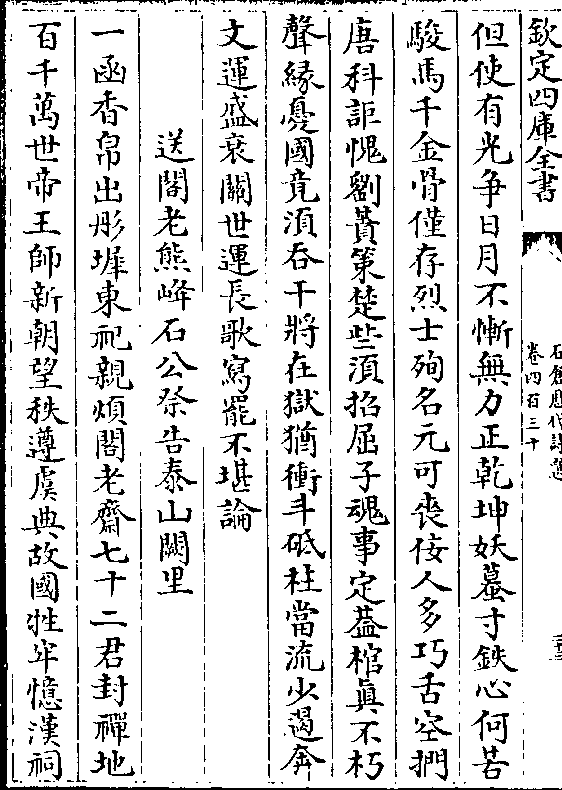 欽定四庫全書
石倉歴代詩選
卷四百三十
但使有光争日月不慚無力正乾坤妖蟇寸鉄心何苦
駿馬千金骨僅存烈士殉名元可喪佞人多巧舌空捫
唐科詎愧劉蕡策楚些須招屈子魂事定葢棺真不朽
聲緣憂國竟須吞干將在獄猶衝斗砥柱當流少遏奔
文運盛衰關世運長歌寫罷不堪論
送閣老熊峰石公祭告泰山闕里
一函香帛出彤墀東祀親煩閣老齋七十二君封禪地
百千萬世帝王師新朝望秩遵虞典故國牲牢憶漢祠